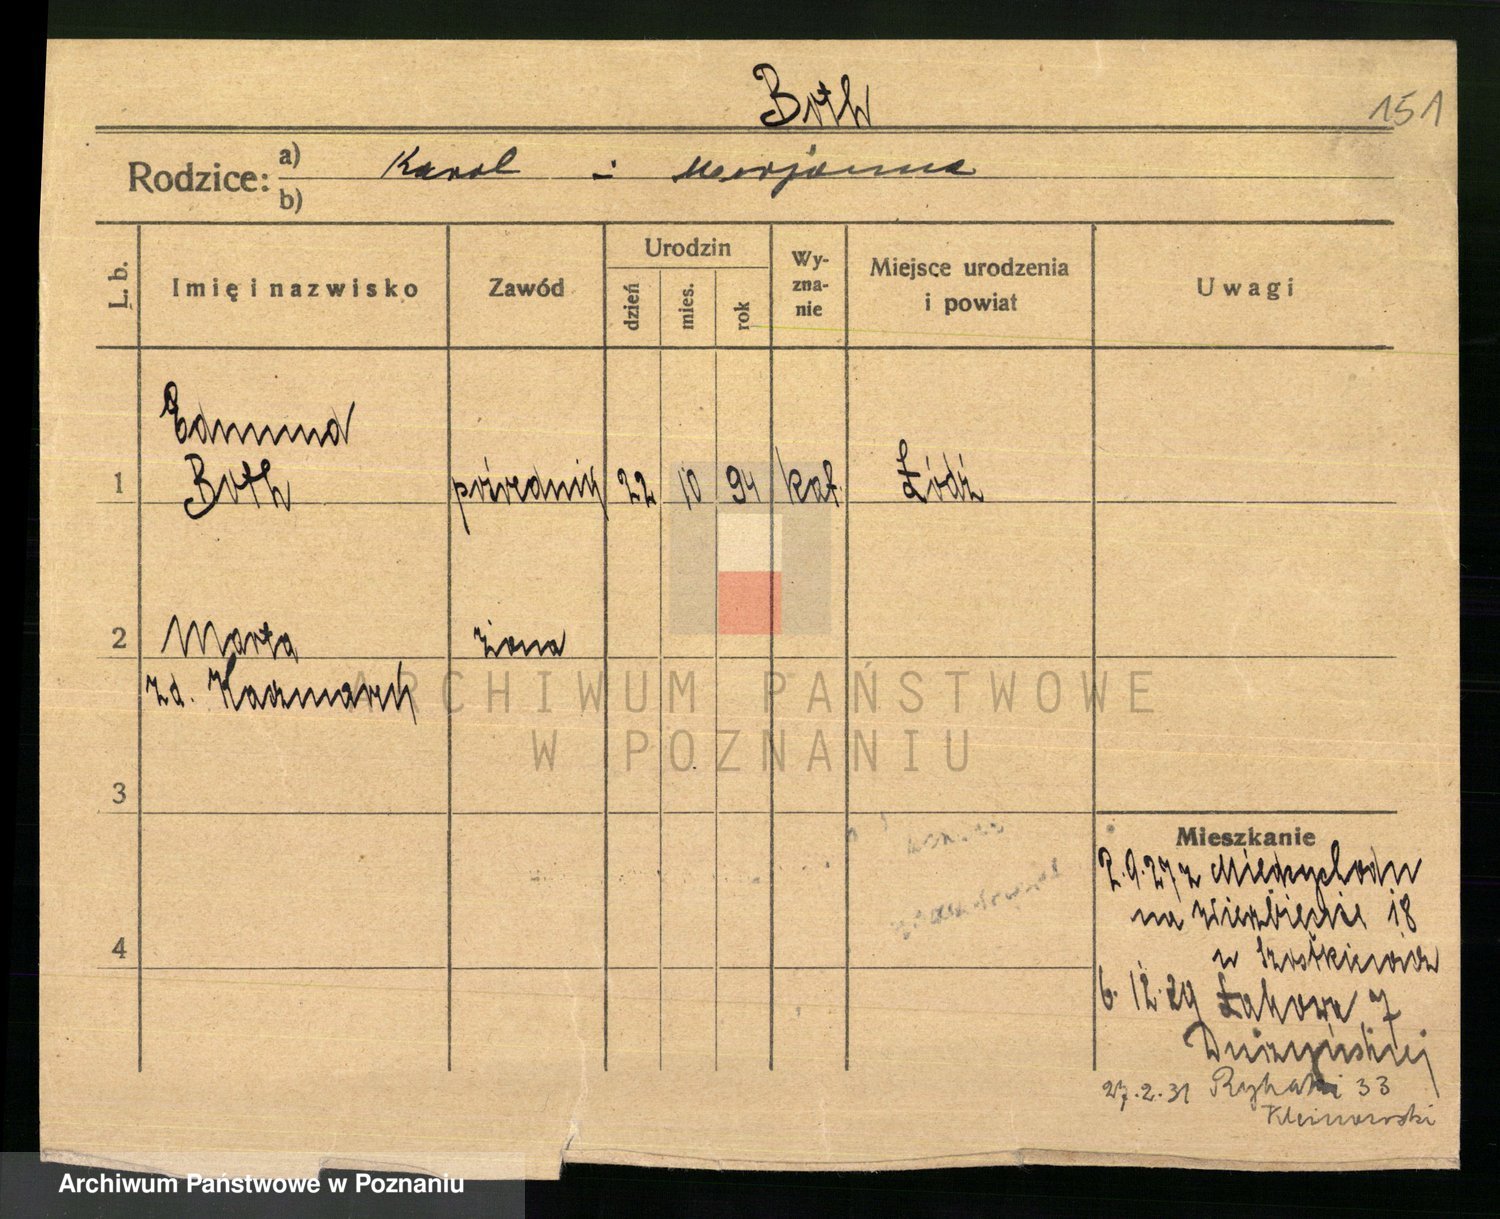 Both
151
Rodzice: a) Karol i Marjanna
b)
L. b. Imię i nazwisko Zawód Urodzin dzień mies. rok Wyznanie Miejsce urodzenia i powiat Uwagi
Edmund
1 Both pośrednik 22 10 94 kat. Łódź
2 Marta żona
zd. Kaczmarek
3
4
Mieszkanie
2.9.27 z Międzychodu
na Wierzbięcice 18
u
6.12.29 Łąkowa 7
27.2.31 Rybaki 33
ARCHIWUM PAŃSTWOWE
W POZNANIU
Archiwum Państwowe w Poznaniu